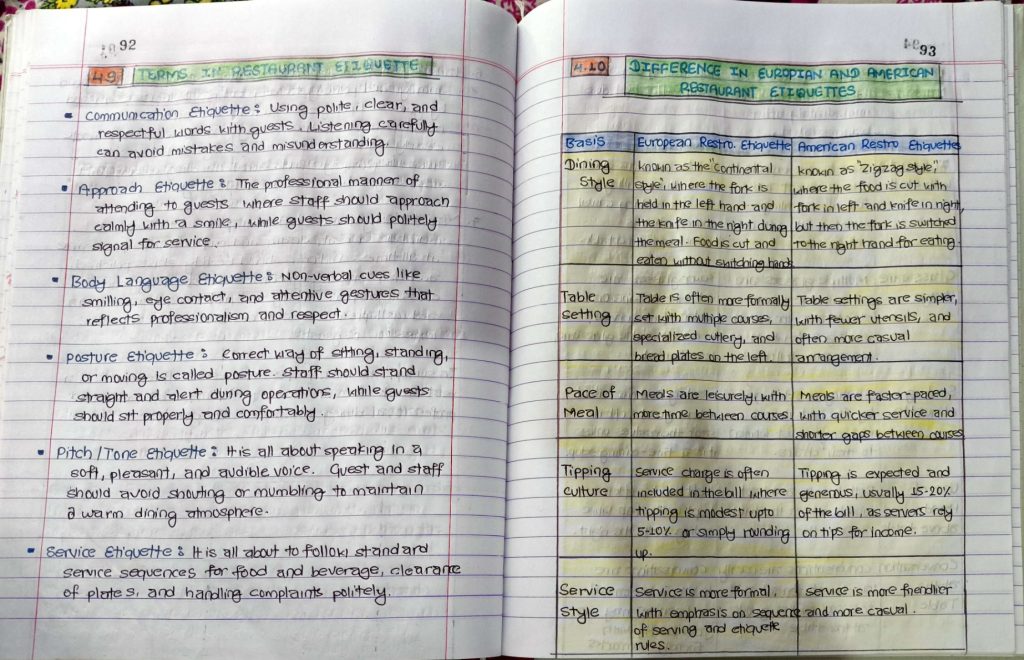 92
4.9 TERMS IN RESTAURANT ETIQUETTE
• Communication Etiquette : Using polite, clear, and
respectful words with guests. Listening carefully
can avoid mistakes and misunderstanding.
• Approach Etiquette : The professional manner of
attending to guests where staff should approach
calmly with a smile, while guests should politely
signal for service.
• Body Language Etiquette : Non-verbal cues like
smilling, eye contact, and attentive gestures that
reflects professionalism and respect.
• Posture Etiquette : Correct way of sitting, standing,
or moving is called posture. Staff should stand
straight and alert during operations, while guests
should sit properly and confortably.
• Pitch/Tone Etiquette : It is all about speaking in a
soft, pleasant, and audible voice. Guest and staff
should avoid shouting or mumbling to maintain
a warm dining atmosphere.
• Service Etiquette : It is all about to follow standard
service sequences for food and beverage, clearance
of plates, and handling complaints politely.
93
4.10 DIFFERENCE IN EUROPIAN AND AMERICAN
RESTAURANT ETIQUETTES
Basis European Restro. Etiquette American Restro Etiquette
Dining known as the "continental known as "Zigzag style",
Style style", where the fork is where the food is cut with
held in the left hand and fork in left and knife in right,
the knife in the right during but then the fork is switched
the meal. Food is cut and to the right hand for eating
eaten without switching hands
Table Table is often more formally Table settings are simpler,
setting set with multiple courses, with fewer utensils, and
specialized cutlery, and often more casual
bread plates on the left. arrangement.
Pace of Meals are leisurely, with Meals are faster-paced,
Meal more time between courses. with quicker service and
shorter gaps between courses
Tipping Service charge is often Tipping is expected and
culture included in the bill where generous, usually 15-20%
tipping is modest upto of the bill, as servers rely
5-10% or simply rounding on tips for income.
up.
Service Service is more formal, service is more friendlier
Style with emphasis on sequence and more casual.
of serving and etiquette
rules.